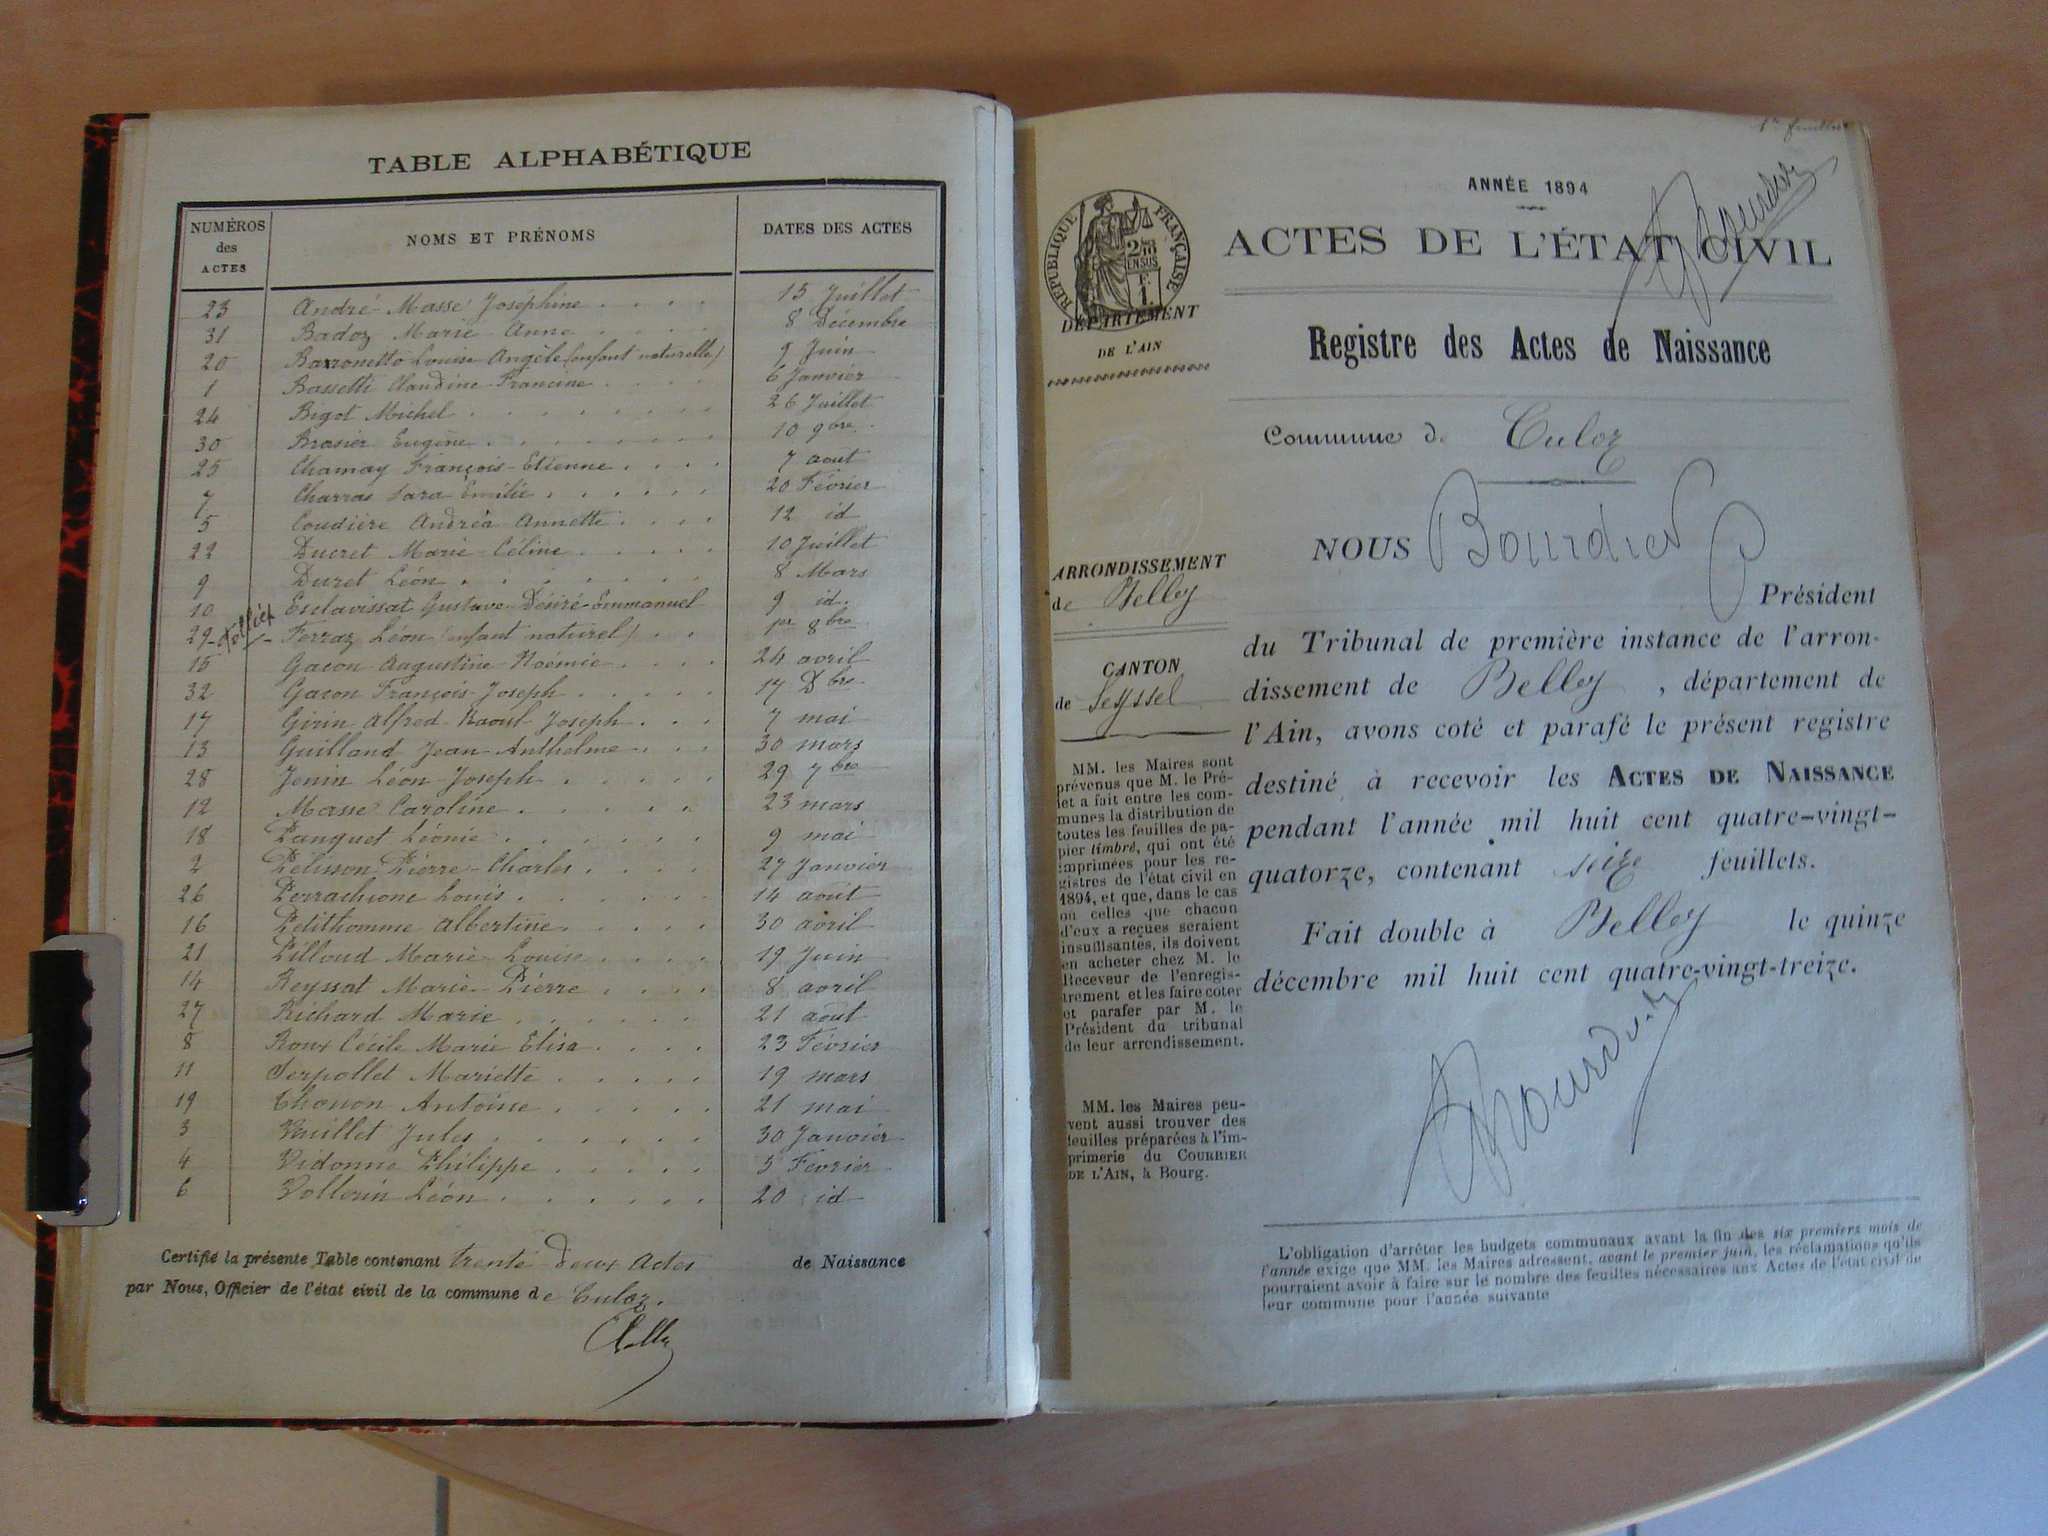 TABLE ALPHABÉTIQUE
NUMÉROS des ACTES NOMS ET PRÉNOMS DATES DES ACTES
23 André Masse Joséphine 15 Juillet
31 Badoz Marie Anne 8 Décembre
20 Barronetto Louise Angèle (enfant naturelle) 9 Juin
1 Bassetti Claudine Francine 6 Janvier
24 Bigot Michel 26 Juillet
30 Brasier Eugène 10 9bre
25 Chamay François-Etienne 7 aout
7 Charras Sara Emélie 20 Février
5 Coudière Andréa Annette 12 id
22 Ducret Marie-Céline 10 Juillet
9 Duret Léon 8 Mars
10 Esclavissat Gustave Désiré-Emmanuel 9 id.
29 - Ferraz Léon (enfant naturel) 1er 8bre
15 Gacon Augustine Noémie 24 avril
32 Gacon François-Joseph 17 Dbre
17 Girin Alfred Raoul Joseph 7 mai
13 Guilland Jean-Anthelme 30 mars
28 Jenin Léon-Joseph 29 7bre
12 Masse Caroline 23 mars
18 Panquet Léonie 9 mai
2 Pélisson Pierre-Charles 27 Janvier
26 Perrachione Louis 14 août
16 Petithomme Albertine 30 avril
21 Pilloud Marie-Louise 19 Juin
14 Reyssat Marie-Pierre 8 avril
27 Richard Marie 21 août
8 Roux Cécile Marie Elisa 23 Février
11 Serpollet Mariette 19 mars
19 Thonon Antoine 21 mai
3 Vuillet Jules 30 Janvier
4 Vidonne Philippe 5 Février
6 Vollerin Léon 20 id
Certifié la présente Table contenant trente-deux actes de Naissance
par Nous, Officier de l'état civil de la commune de Culoz.
1er feuillet
ANNÉE 1894
ACTES DE L'ÉTAT CIVIL
RÉPUBLIQUE FRANÇAISE
2/10 EN SUS
F. 1.
DÉPARTEMENT
DE L'AIN
Registre des Actes de Naissance
Commune de Culoz
NOUS Bourdier
Président
du Tribunal de première instance de l'arron-
dissement de Belley, département de
l'Ain, avons coté et parafé le présent registre
destiné à recevoir les ACTES DE NAISSANCE
pendant l'année mil huit cent quatre-vingt-
quatorze, contenant seize feuillets.
Fait double à Belley le quinze
décembre mil huit cent quatre-vingt-treize.
ARRONDISSEMENT
de Belley
CANTON
de Seyssel
MM. les Maires sont
prévenus que M. le Pré-
fet a fait entre les com-
munes la distribution de
toutes les feuilles de pa-
pier timbré, qui ont été
imprimées pour les re-
gistres de l'état civil en
1894, et que, dans le cas
où celles que chacun
d'eux a reçues seraient
insuffisantes, ils doivent
en acheter chez M. le
Receveur de l'enregis-
trement et les faire coter
et parafer par M. le
Président du tribunal
de leur arrondissement.
MM. les Maires peu-
vent aussi trouver des
feuilles préparées à l'im-
primerie du COURRIER
DE L'AIN, à Bourg.
L'obligation d'arrêter les budgets communaux avant la fin des six premiers mois de
l'année exige que MM. les Maires adressent, avant le premier juin, les réclamations qu'ils
pourraient avoir à faire sur le nombre des feuilles nécessaires aux Actes de l'état civil de
leur commune pour l'année suivante